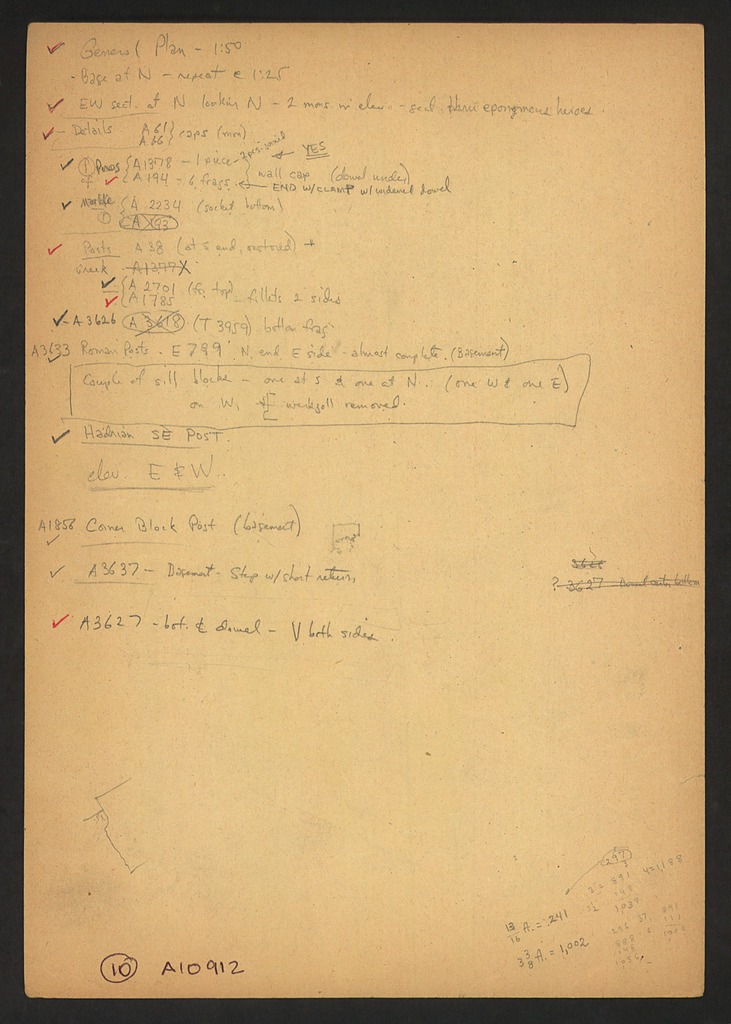 ✓ General Plan - 1:50
- Base at N - repeat @ 1:25
✓ EW sect. at N lookin N - 2 mons in elev. eponymous heroes.
✓ - Details A 61 } caps (mon)
A 66
YES
✓ ① Poros { A1378 - 1 piece
wall cap (dowel under)
✓ A194 - 6 frags. ← END W/CLAMP w/ dowel
✓ Marble { A 2234 (socket bottom)
① A 193
✓ Posts A 38 (at S end, restored)
Greek A1377 X
✓ { A 2701 (fr. top)
✓ A1785 - fillets 2 sides
✓ - A3626 A 3618 (T 3959) bottom frag.
A3633 Roman Posts. E 799 N. end E side - almost complete. (Basement)
Couple of sill blocks - one at S & one at N. (one W & one E)
on W, werkzoll removed.
✓ Hadrian SE POST.
elev. E & W.
A1856 Corner Block Post (basement)
✓ A3637 - Basement - Step w/ short return
3625
? 3627 Dowel bottom
✓ A3627 - bot. & dowel - V both sides.
297
3
3 = 891 4 = 1,188
13/16 A. = .241
3 3/8 A. = 1,002
⑩ A10912